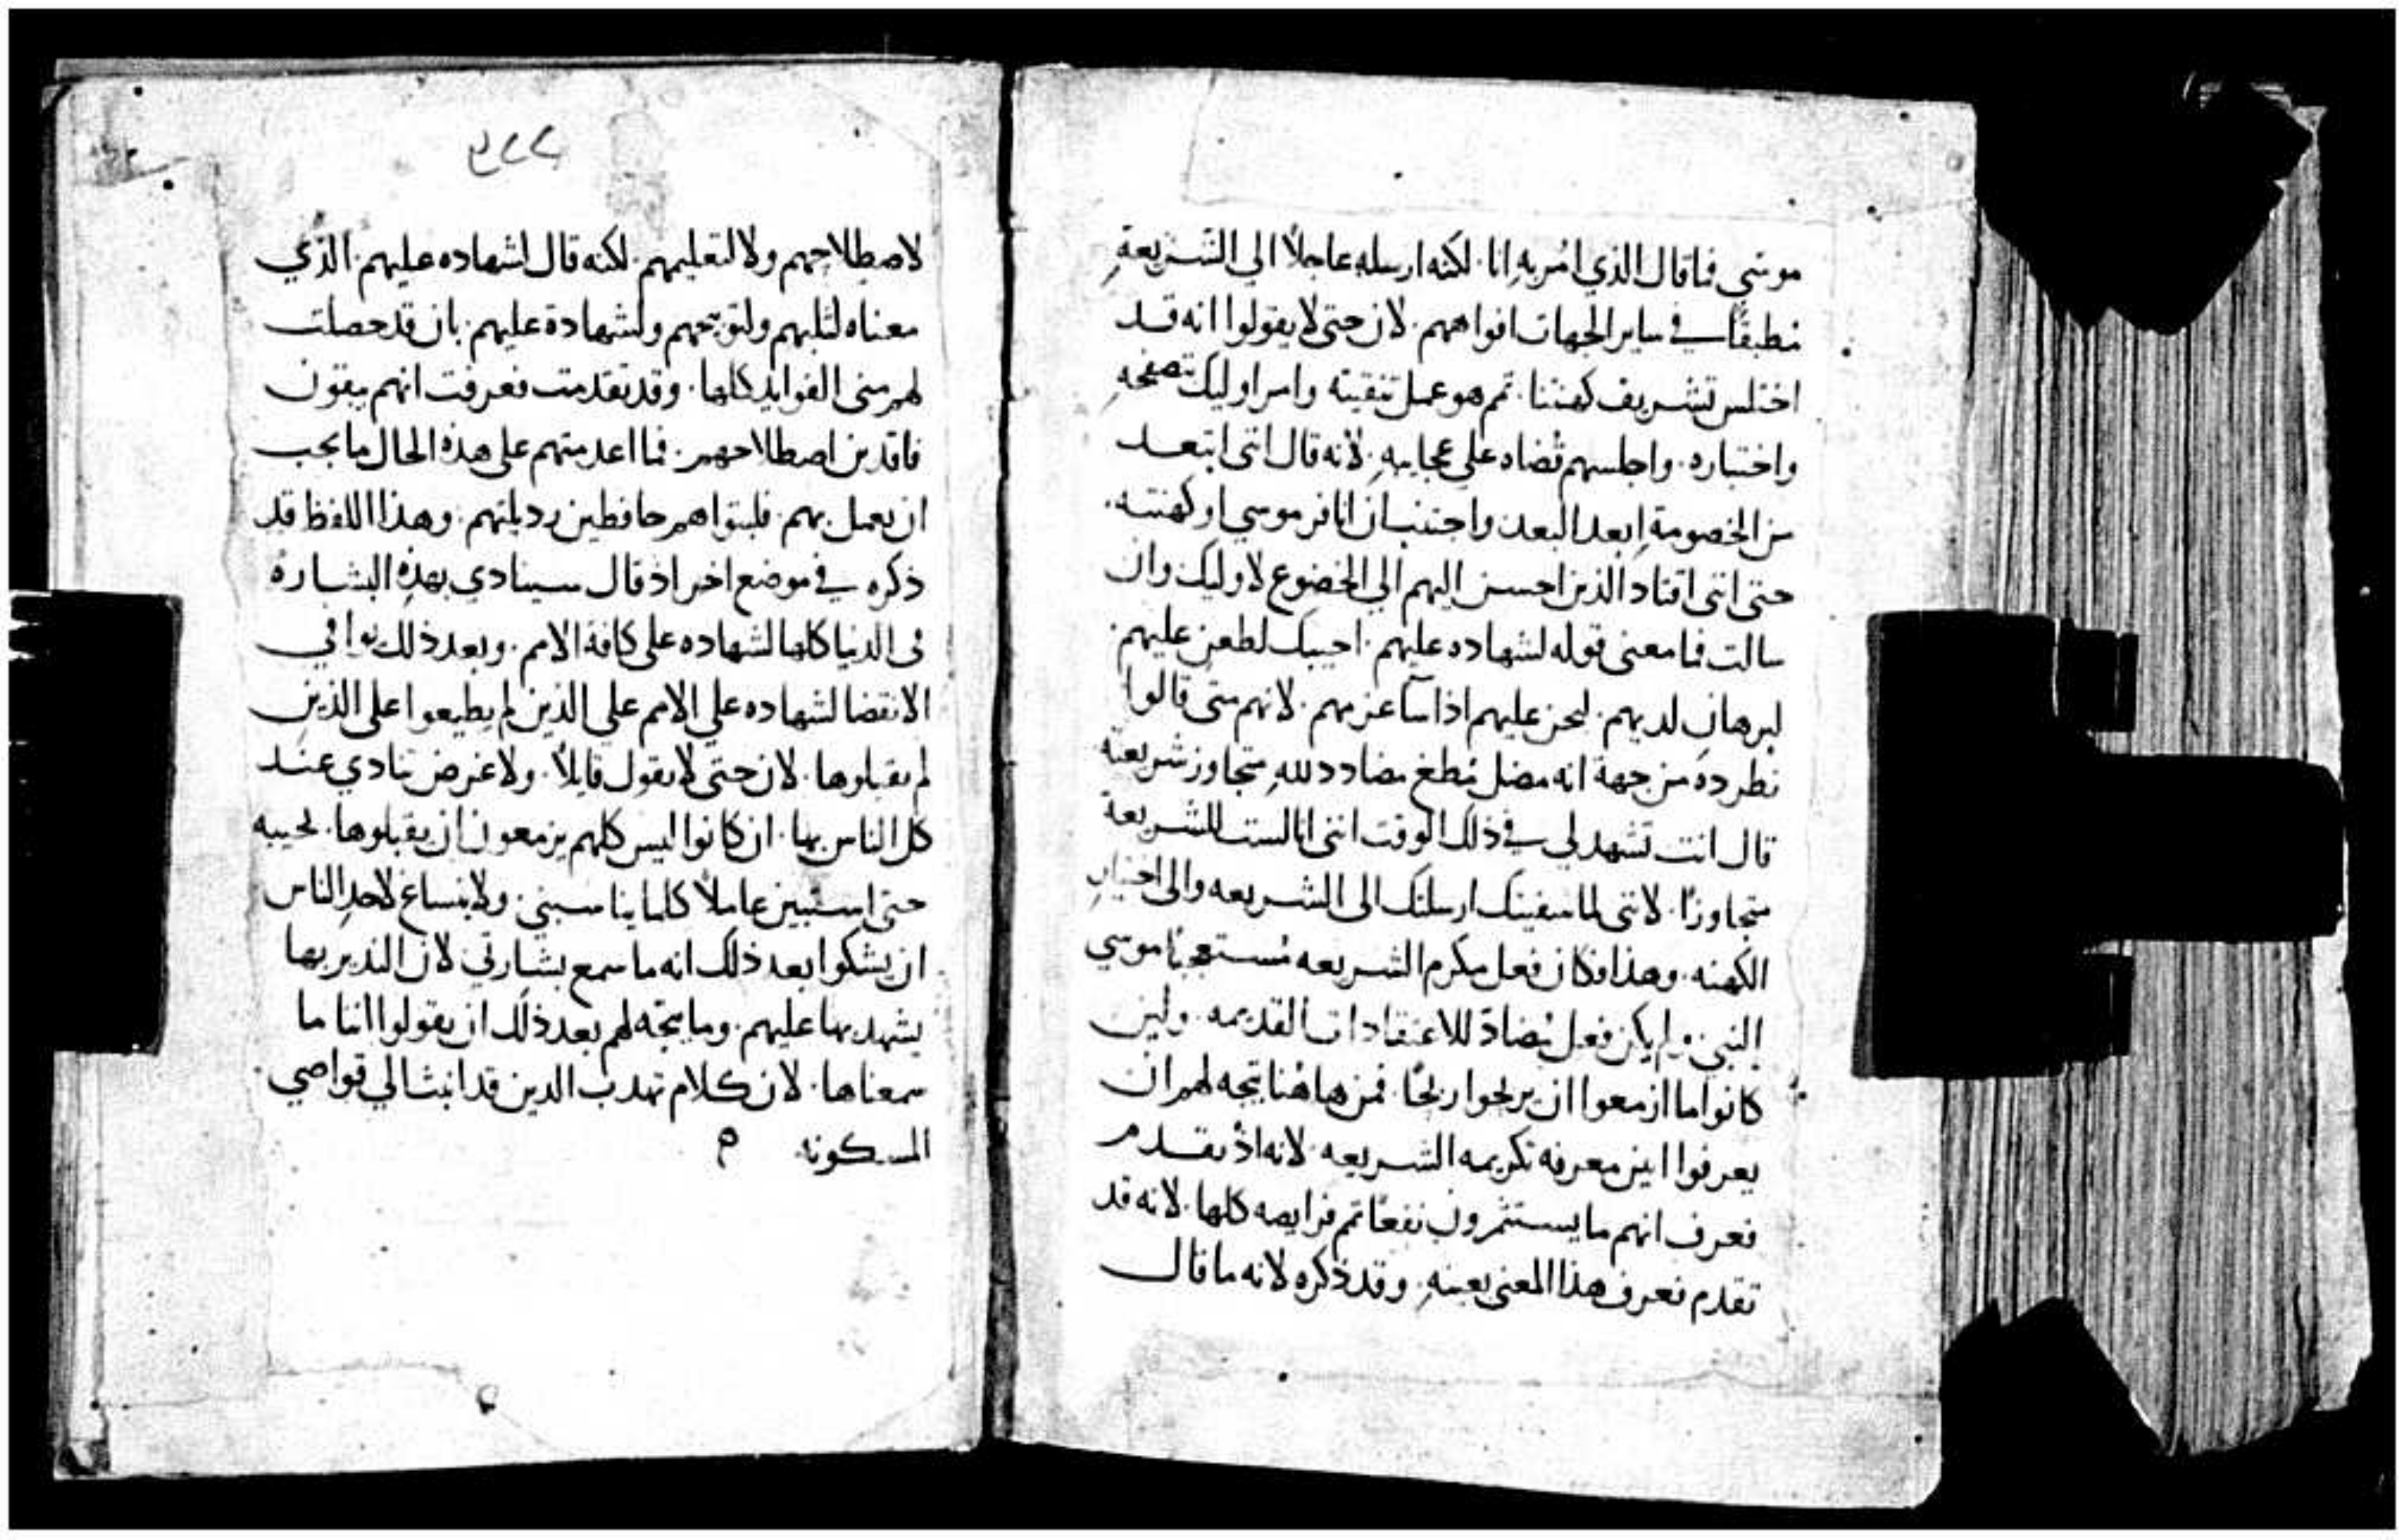 موسي فما قال الذي امُر به انا. لكنه ارسله عاجلاً الي الشريعةِ
مُطبقًا في ساير الجهات افواههم. لان حتى لا يقولوا انه قد
اختلس تشريف كهنتنا. تمم هو عمل تنقيته وامر اوليك تصفحهِ
واختباره. واجلسهم قُضاه علي عجايبهِ. لانه قال انني ابتعد
من الخصومةِ ابعد البعد واجتنب ان انافر موسي او كهنته.
حتى انني اقتاد الذين احسن اليهم الي الخضوع لاوليك وان
سالت فما معنى قوله لشهاده عليهم. اجيبك لطعن عليهم
لبرهان لديهم. لحزن عليهم اذا ساعزمهم. لانهم متى قالوا
نطرده من جهة انه مضل مُطغ مضادد للهِ متجاوز شريعته
قال انت تشهد لي في ذلك الوقت انني انا لست للشريعة
متجاوزًا. لانني لما شفيتك ارسلتك الى الشريعه والى اختبارِ
الكهنه. وهذا فكان فعل مكرم الشريعه مُستعجبًا موسي
النبي. ولم يكن فعل مُضادّ للاعتقادات القديمه. ولين
كانوا ما ازمعوا ان يربحوا ربحًا. فمن هاهُنا يتجه لهم ان
يعرفوا اين معرفه تكريمه الشريعه. لانه اذ تقدم
فعرف انهم ما يستثمرون نفعًا تمم فرايضه كلها. لانه قد
تقدم فعرف هذا المعنى بعينهِ. وقد ذكره لانه ما قال
٢٢٩
لاصطلاحهم ولا لتعليمهم. لكنه قال لشهاده عليهم. الذي
معناه لثلبهم ولتوبيخهم ولشهادة عليهم. بان قد حصلت
لهم منى الفوايد كلها. وقد تقدمت فعرفت انهم يبقون
فاقدين اصطلاحهم. فما اعدمتهم على هذه الحال ما يجب
ان يعمل بهم. فلبثوا هم حافظين رديلتهم. وهذا اللفظ قد
ذكره في موضع اخر اذ قال سينادي بهذه البشارة
فى الدنيا كلها لشهاده على كافة الامم. وبعد ذلك يوافي
الانقضا لشهاده علي الامم علي الذين لم يطيعوا على الذين
لم يقبلوها. لان حتى لا يقول قايلاً. ولا غرض تنادي عند
كل الناس بها. ان كانوا ليس كلهم يزمعون ان يقبلوها. نجيبه
حتى استبين عاملاً كلما يناسبني. ولا ينساغ لاحدِ الناس
ان يشكوا بعد ذلك انه ما سمع بشارتي لان النذير بها
يشهد بها عليهم. وما يتجه لهم بعد ذلك ان يقولوا اننا ما
سمعناها. لان كلام تهدب الدين قد انبث الي قواصي
المسكونه. م